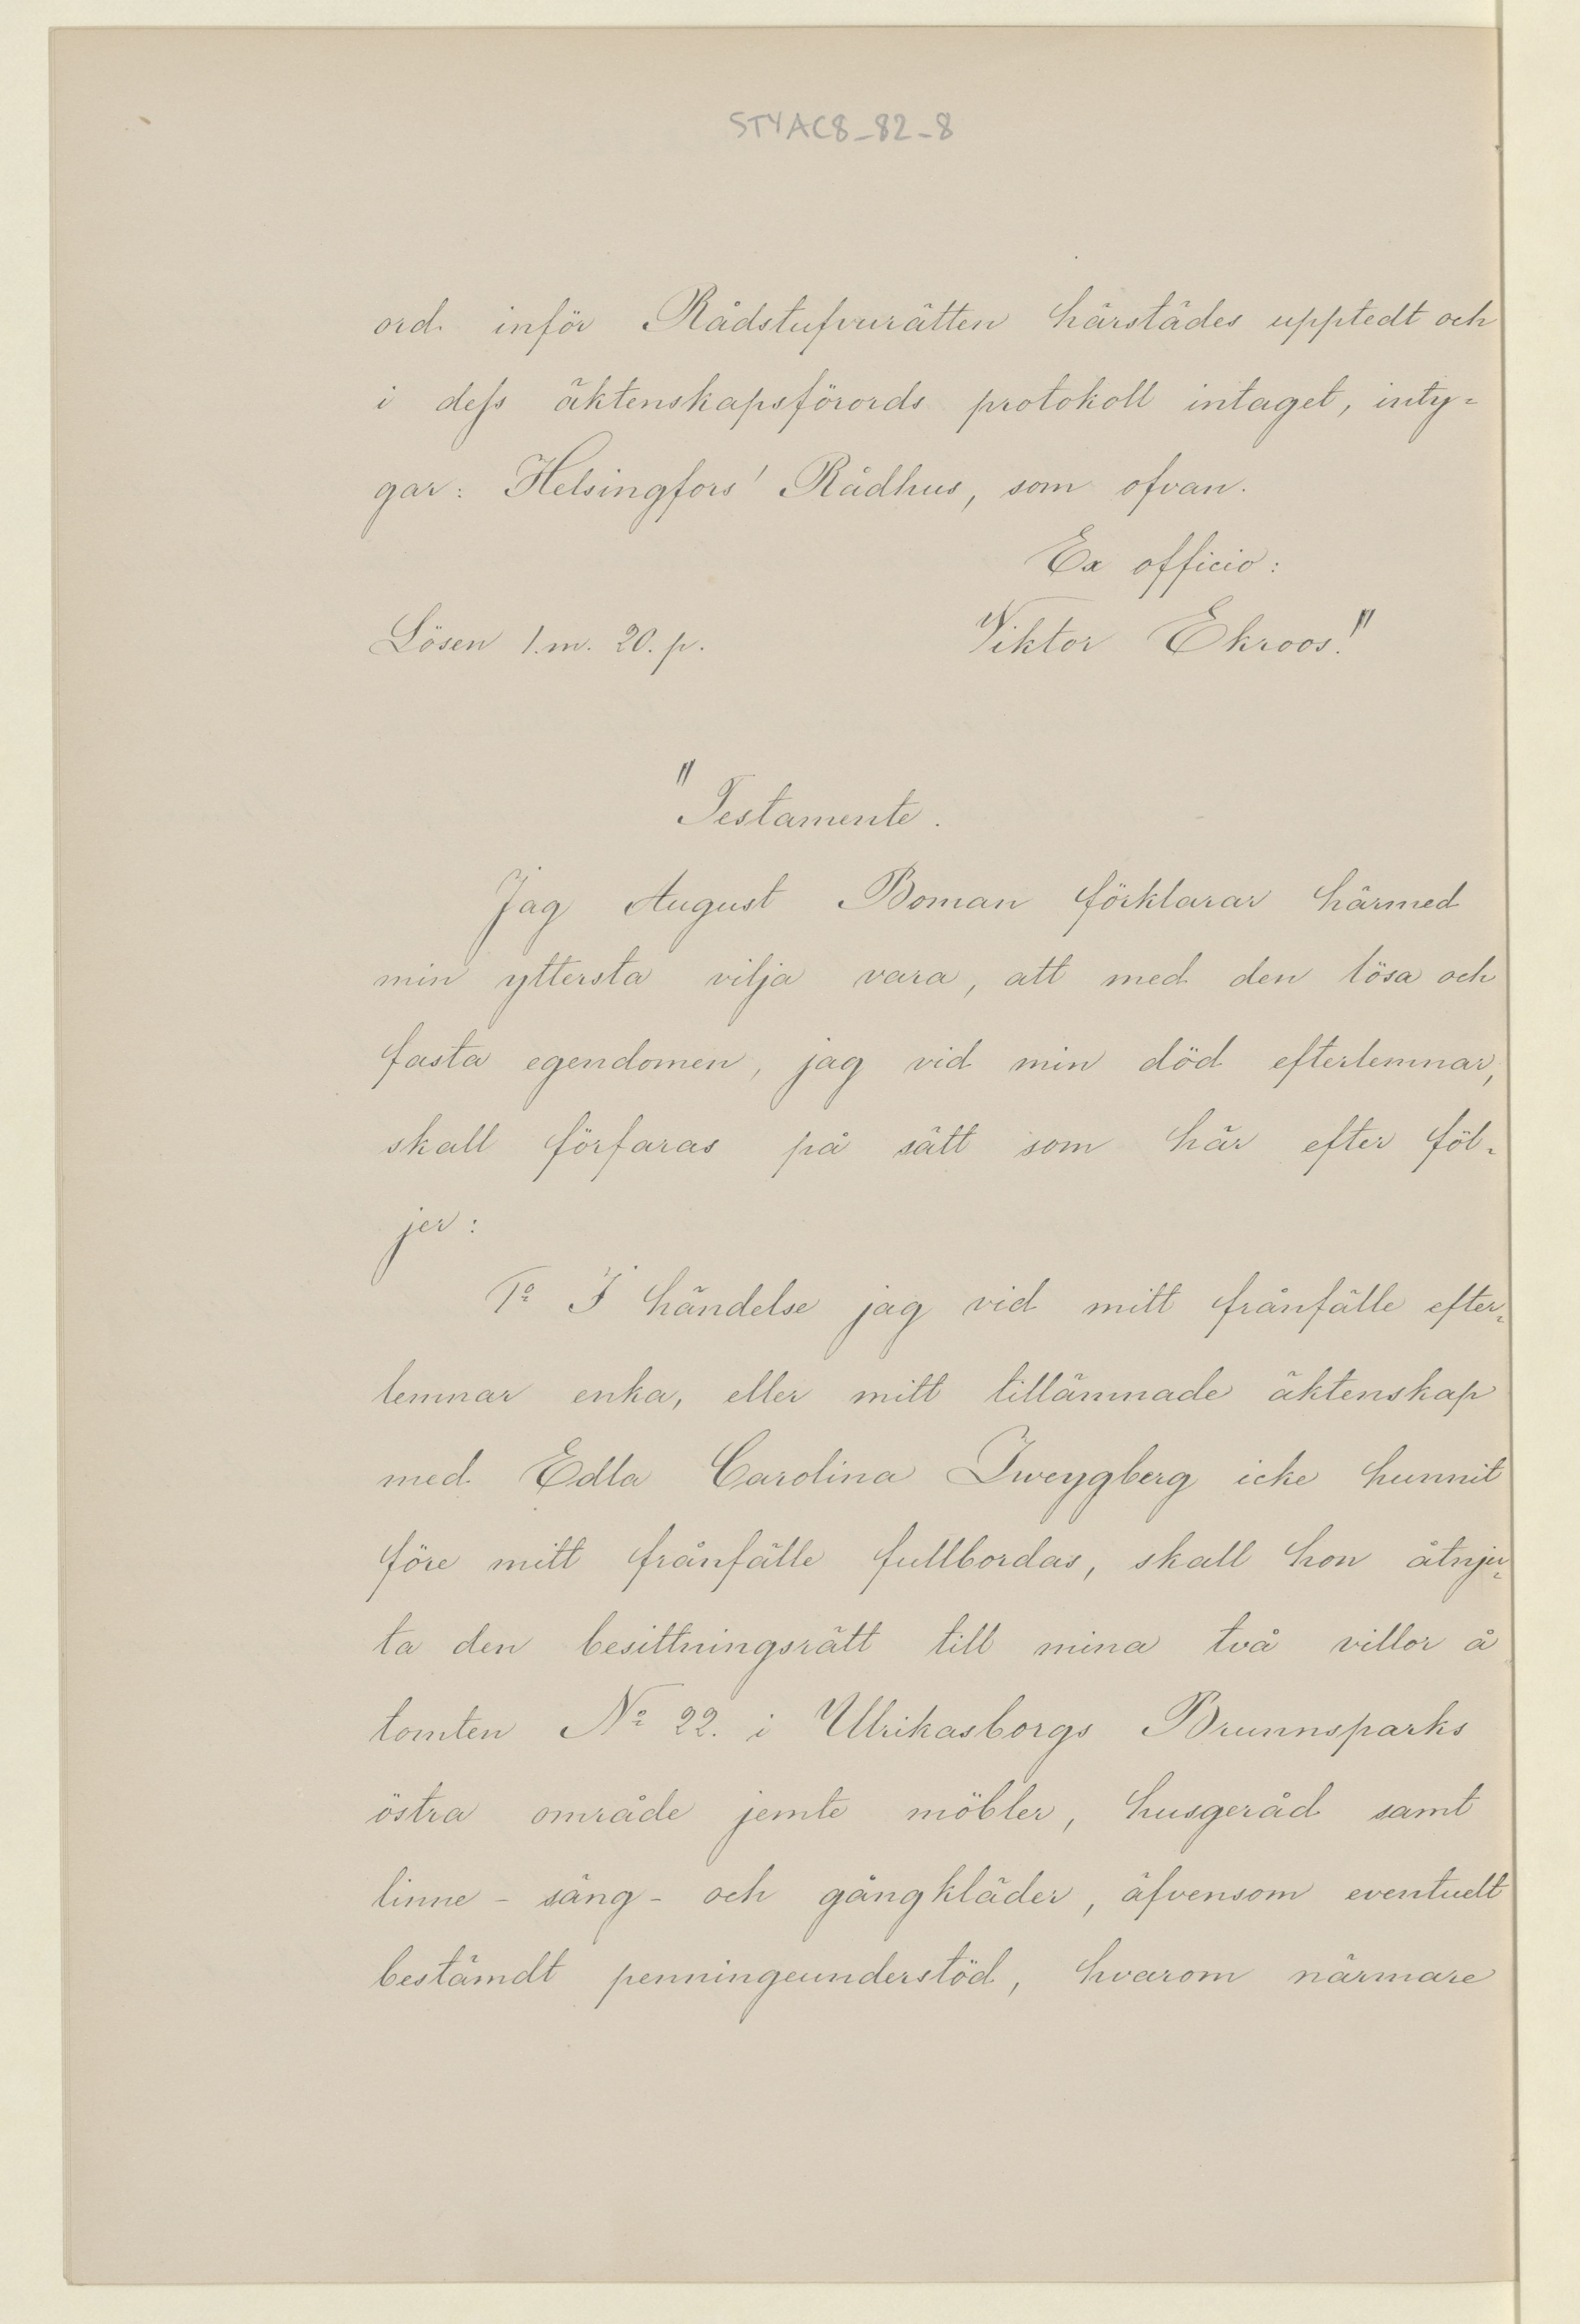 STYAC8_82_8
ord inför Rådstufvurätten härstädes upptedt och
i dess äktenskapsförords protokoll intaget, inty=
gar: Helsingfors' Rådhus, som ofvan.
Ex officio:
Lösen 1.m. 20. p. Viktor Ekroos."
"Testamente.
Jag August Boman förklarar härmed
min yttersta vilja vara, att med den lösa och
fasta egendomen, jag vid min död efterlemnar,
skall förfaras på sätt som här efter föl=
jer:
1º I händelse jag vid mitt frånfälle efter=
lemnar enka, eller mitt tillämnade äktenskap
med Edla Carolina Zweygberg icke hunnit
före mitt frånfälle fullbordas, skall hon åtnju=
ta den besittningsrätt till mina två villor å
tomten Nº 22. i Ulrikasborgs Brunnsparks
östra område jemte möbler, husgeråd samt
linne - säng - och gångkläder, äfvensom eventuelt
bestämdt penningeunderstöd, hvarom närmare